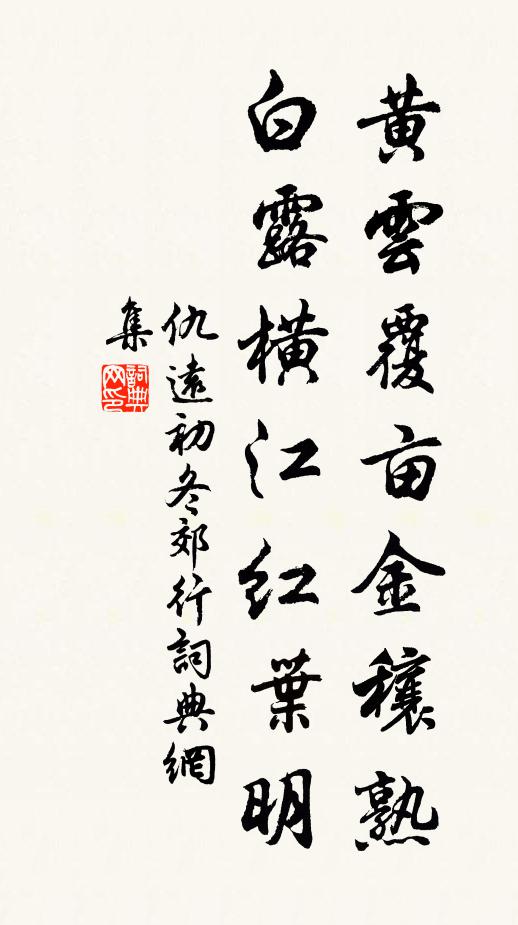 黃雲覆亩金穰熟
白露橫江紅葉明
仇遠初冬郊行詞典網
集
詞典
网印